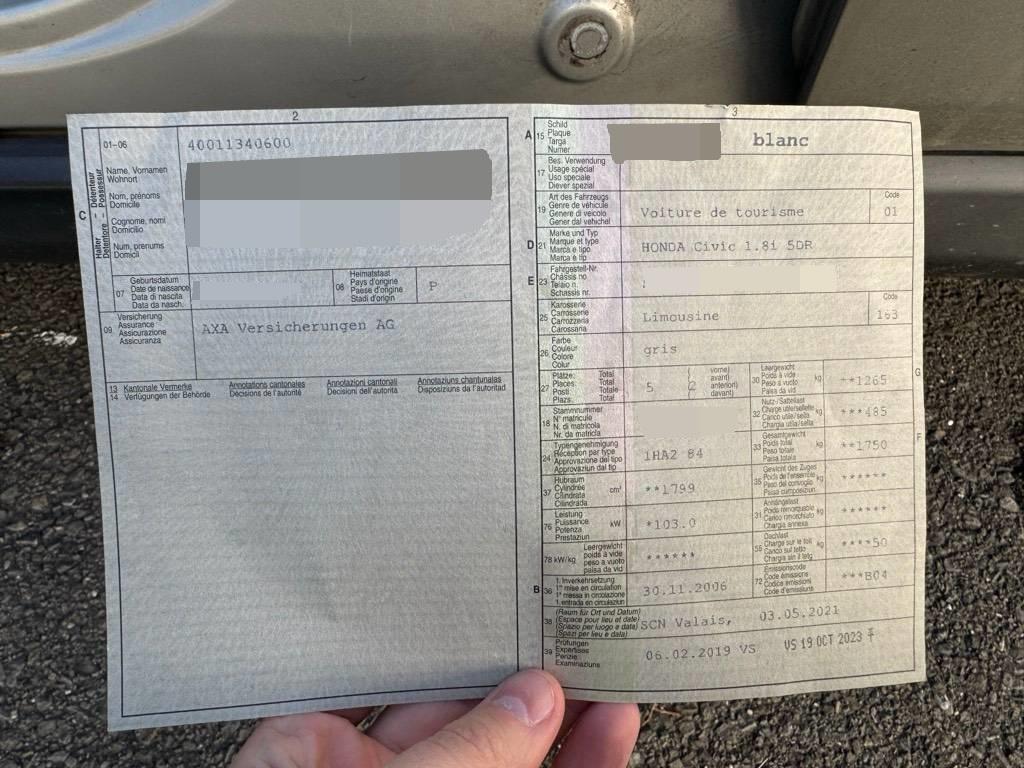 2
01-06
40011340600
C
Halter - Détenteur
Detentore - Possessur
Name, Vornamen
Wohnort
Nom, prénoms
Domicile
Cognome, nomi
Domicilio
Num, prenums
Domicil
07
Geburtsdatum
Date de naissance
Data di nascita
Data da nasch.
08
Heimatstaat
Pays d'origine
Paese d'origine
Stadi d'origin
P
09
Versicherung
Assurance
Assicurazione
Assicuranza
AXA Versicherungen AG
13 Kantonale Vermerke Annotations cantonales Annotazioni cantonali Annotaziuns chantunalas
14 Verfügungen der Behörde Décisions de l'autorité Decisioni dell'autorità Disposiziuns da l'autoritad
3
A 15
Schild
Plaque
Targa
Numer
blanc
17
Bes. Verwendung
Usage spécial
Uso speciale
Diever spezial
19
Art des Fahrzeugs
Genre de véhicule
Genere di veicolo
Gener dal vehichel
Voiture de tourisme
Code
01
D 21
Marke und Typ
Marque et type
Marca e tipo
Marca e tip
HONDA Civic 1.8i 5DR
E 23
Fahrgestell-Nr.
Châssis no
Telaio n.
Schassis nr.
25
Karosserie
Carrosserie
Carrozzeria
Carossaria
Limousine
Code
163
26
Farbe
Couleur
Colore
Colur
gris
27
Plätze: Total
Places: Total
Posti: Totale
Plazs: Total
5
(2
vorne)
avant)
anteriori)
davant)
30
Leergewicht
Poids à vide
Peso a vuoto
Paisa da vid
kg
**1265
G
18
Stammnummer
N° matricule
N. di matricola
Nr. da matricla
32
Nutz-/Sattellast
Charge utile/sellette
Carico utile/sella
Chargia utila/sella
kg
***485
24
Typengenehmigung
Réception par type
Approvazione del tipo
Approvaziun dal tip
1HA2 84
33
Gesamtgewicht
Poids total
Peso totale
Paisa totala
kg
**1750
F
37
Hubraum
Cylindrée
Cilindrata
Cilindrada
cm³
**1799
35
Gewicht des Zuges
Poids de l'ensemble
Peso del convoglio
Paisa cumposiziun
kg
******
76
Leistung
Puissance
Potenza
Prestaziun
kW
*103.0
31
Anhängelast
Poids remorquable
Carico rimorchiato
Chargia annexa
kg
******
78 kW/kg
Leergewicht
poids à vide
peso a vuoto
paisa da vid
******
55
Dachlast
Charge sur le toit
Carico sul tetto
Chargia sin il tetg
kg
****50
B 36
1. Inverkehrsetzung
1re mise en circulation
1a messa in circolazione
1. entrada en circulaziun
30.11.2006
72
Emissionscode
Code émissions
Codice emissioni
Code d'emissiuns
***B04
38
(Raum für Ort und Datum)
(Espace pour lieu et date)
(Spazio per luogo e data)
(Spazi per lieu e data)
SCN Valais, 03.05.2021
39
Prüfungen
Expertises
Perizie
Examinaziuns
06.02.2019 VS VS 19 OCT 2023